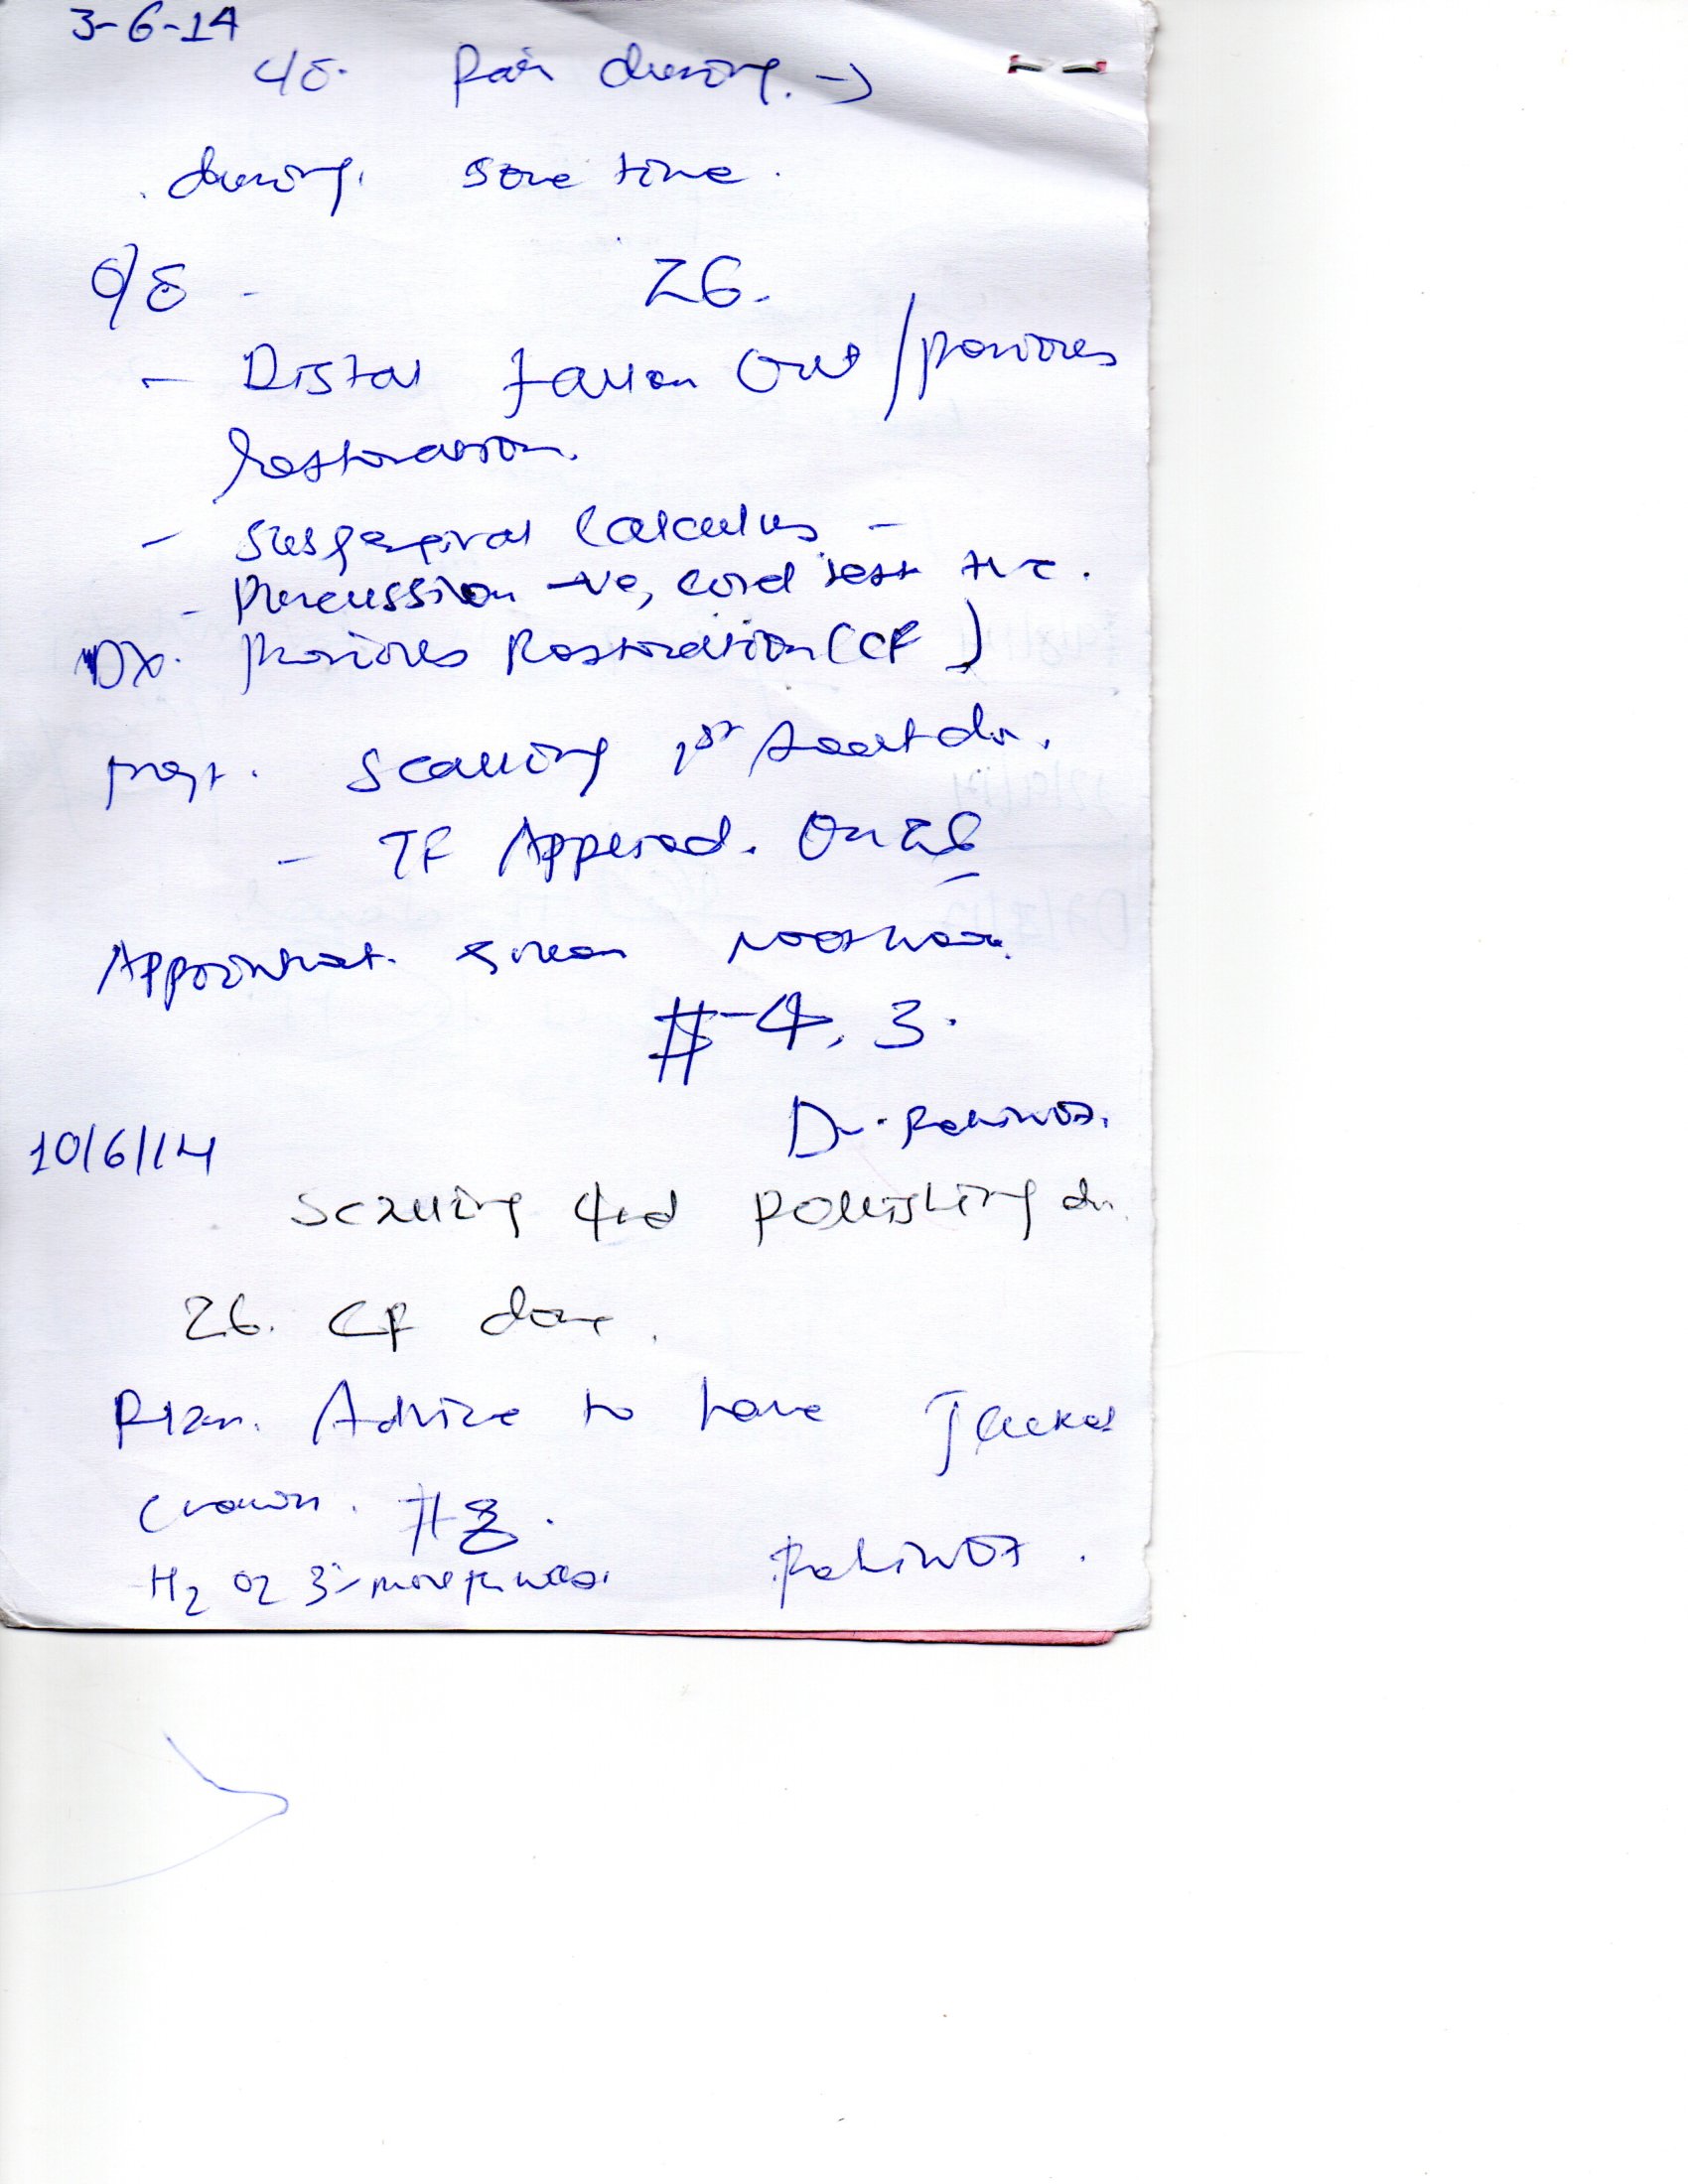 3-6-14
C/O. Pain during. →
during. some time.
O/E - 26.
- Distal fallen out / previous
restoration.
- Subgingival Calculus -
- Percussion -ve, cold test +ve.
DX. previous Restoration (CF)
Scalling 1st
- TF Applied. On 26
Appointment. given
#-4, 3.
Dr.
10/6/14
Scalling and pollishing
26. CF done.
Plan. Advice to have Jacket
crown. #8.
H2O2 3%